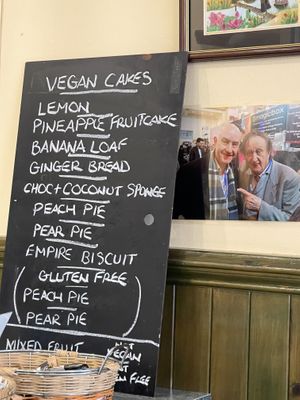 VEGAN CAKES
LEMON
PINEAPPLE FRUITCAKE
BANANA LOAF
GINGER BREAD
CHOC + COCONUT SPONGE
PEACH PIE
PEAR PIE
EMPIRE BISCUIT
GLUTEN FREE
(PEACH PIE
PEAR PIE)
MIXED FRUIT NOT
VEGAN
GLUTEN FREE